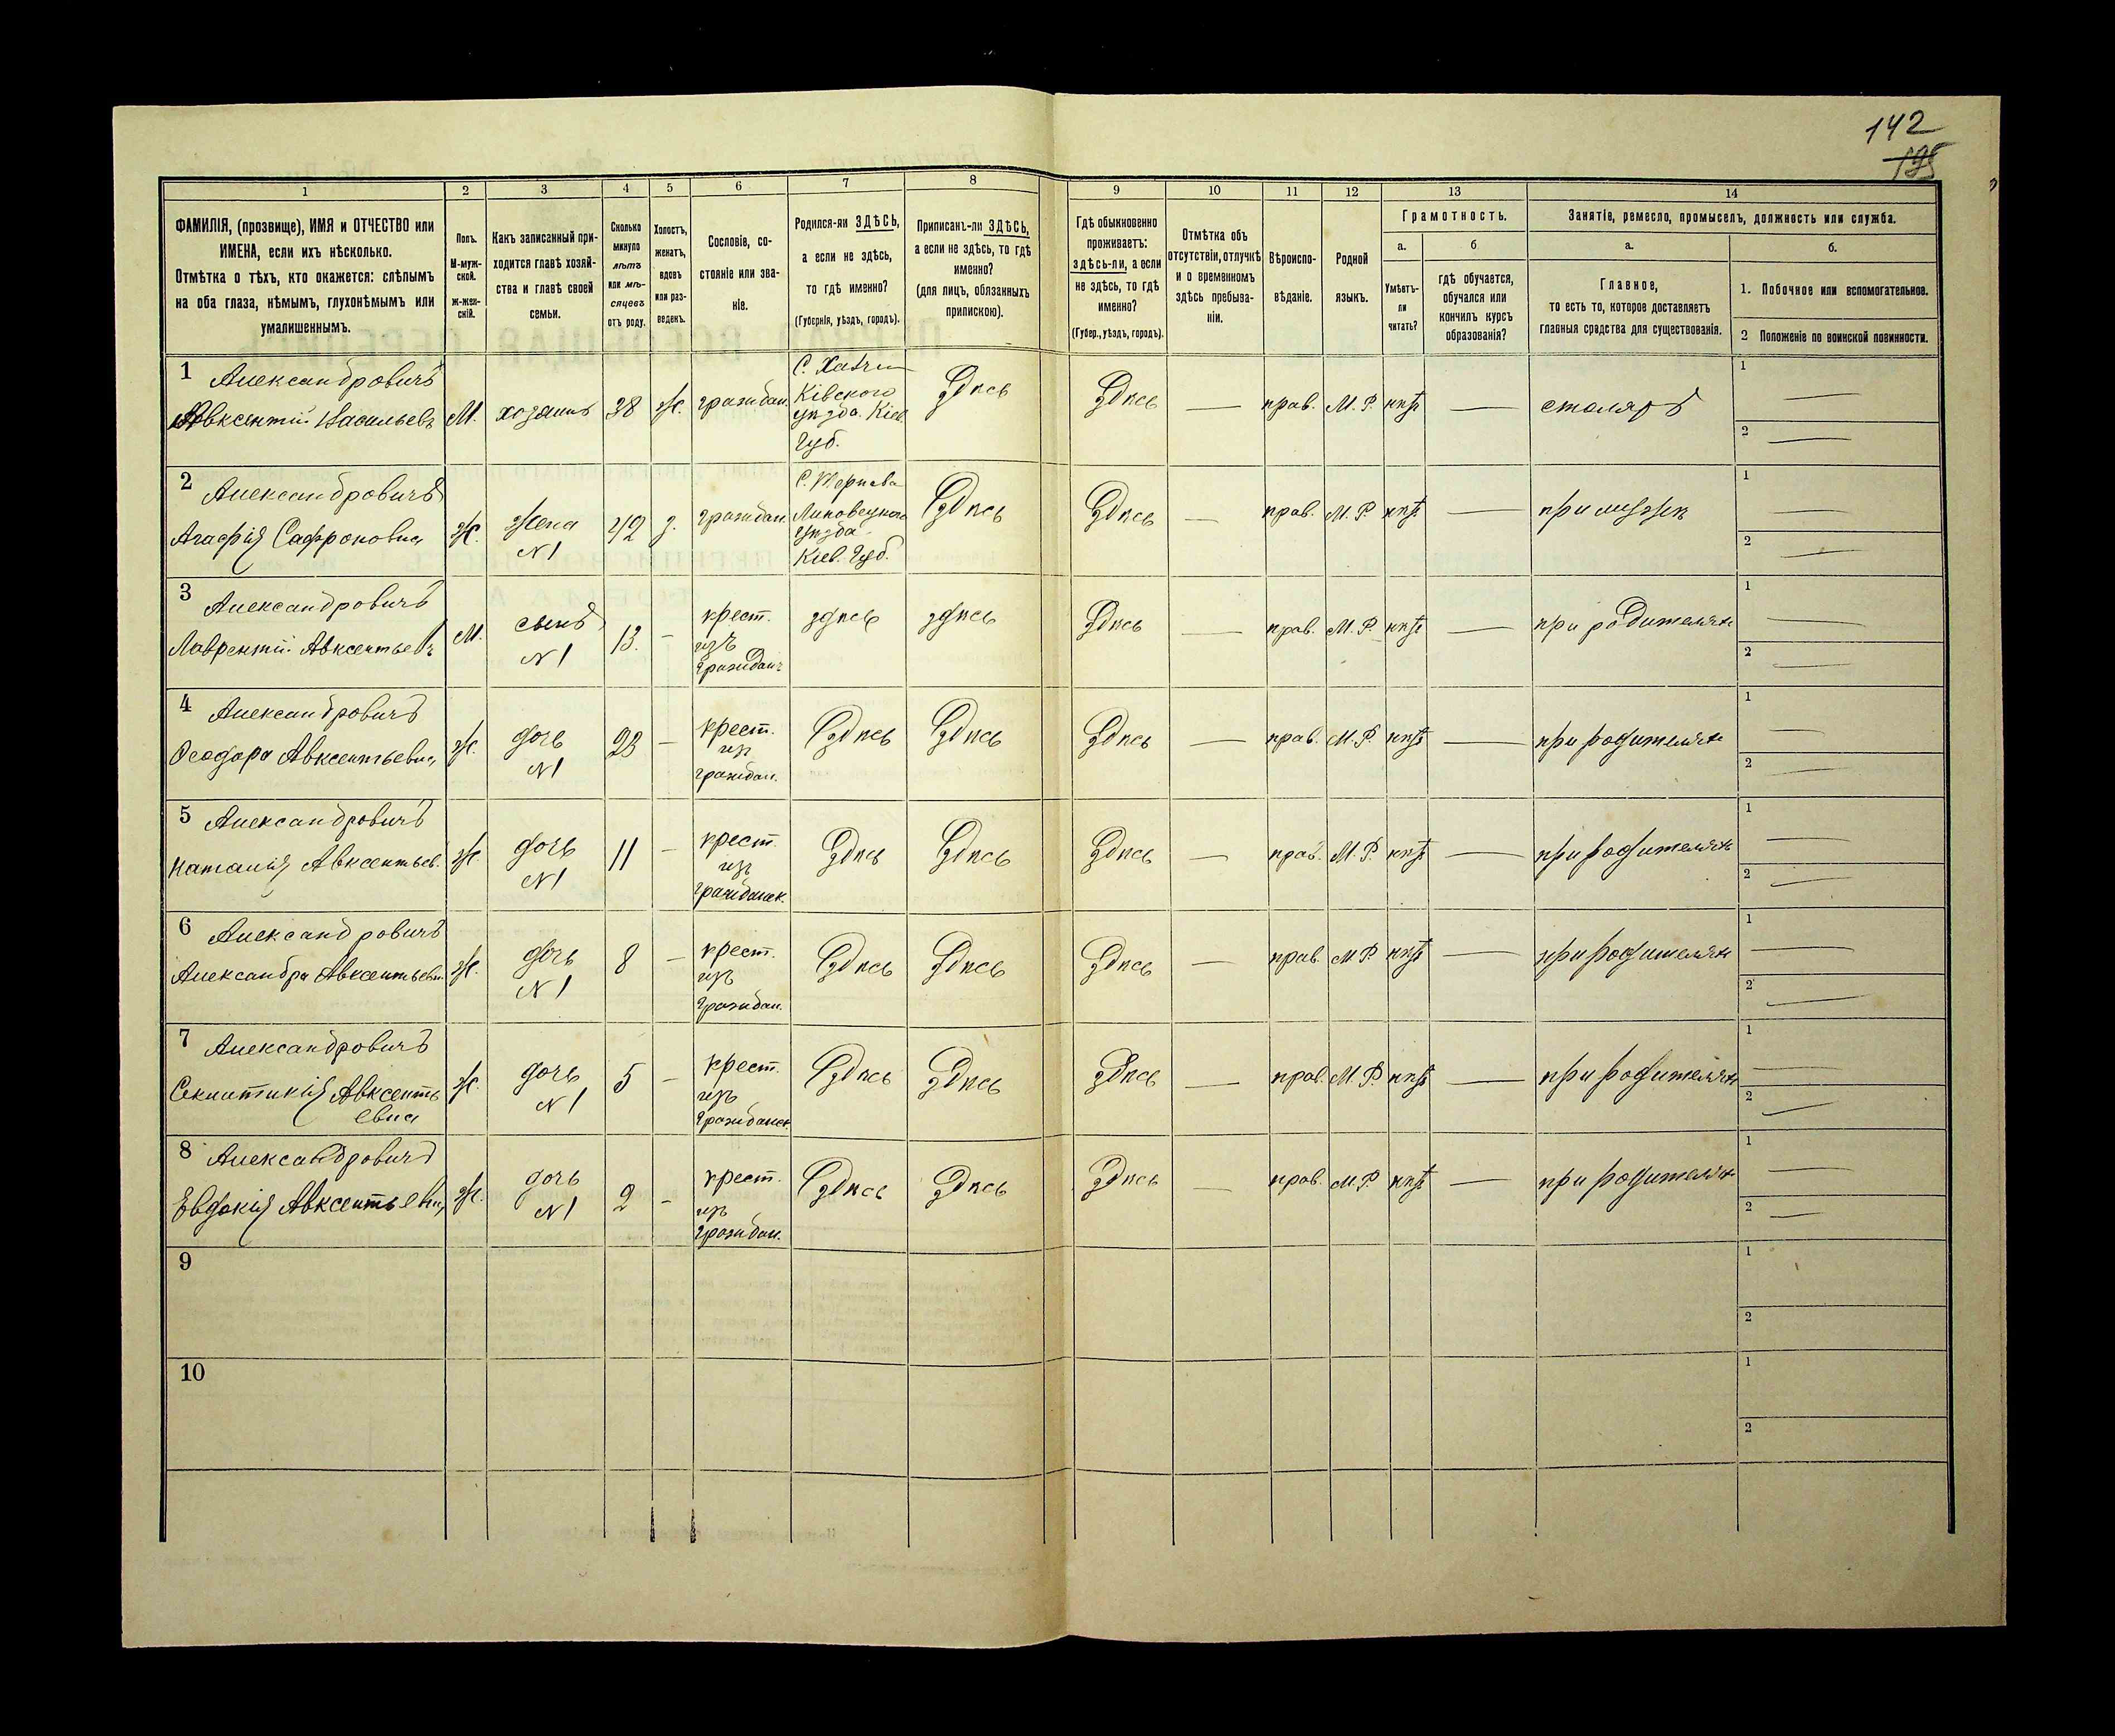 142
195
1 2 3 4 5 6 7 8 9 10 11 12 13 14
ФАМИЛІЯ, (прозвище), ИМЯ и ОТЧЕСТВО или
ИМЕНА, если ихъ нѣсколько.
Отмѣтка о тѣхъ, кто окажется: слѣпымъ
на оба глаза, нѣмымъ, глухонѣмымъ или
умалишеннымъ.
Полъ.
М-муж-
ской.
ж-жен-
скій.
Какъ записанный при-
ходится главѣ хозяй-
ства и главѣ своей
семьи.
Сколько
минуло
лѣтъ
или мѣ-
сяцевъ
отъ роду.
Холостъ,
женатъ,
вдовъ
или раз-
веденъ.
Сословіе, со-
стояніе или зва-
ніе.
Родился-ли ЗДѢСЬ,
а если не здѣсь,
то гдѣ именно?
(Губернія, уѣздъ, городъ).
Приписанъ-ли ЗДѢСЬ,
а если не здѣсь, то гдѣ
именно?
(для лицъ, обязанныхъ
припискою).
Гдѣ обыкновенно
проживаетъ:
здѣсь-ли, а если
не здѣсь, то гдѣ
именно?
(Губер., уѣздъ, городъ).
Отмѣтка объ
отсутствіи, отлучкѣ
и о временномъ
здѣсь пребыва-
ніи.
Вѣроиспо-
вѣданіе.
Родной
языкъ.
Грамотность.
а.
Умѣетъ-
ли
читать?
б
гдѣ обучается,
обучался или
кончилъ курсъ
образованія?
Занятіе, ремесло, промыселъ, должность или служба.
а.
Главное,
то есть то, которое доставляетъ
главныя средства для существованія.
б.
1. Побочное или вспомогательное.
2 Положеніе по воинской повинности.
1 Александровичъ
Авксентій Васильевъ М. хозяинъ 38 ж. граждан. С.
Кіевского
уѣзда. Кіев.
Губ. Здѣсь Здѣсь — прав. М. Р. нѣтъ — столяръ 1 —
2 —
2 Александровичъ
Агафія Сафроновна Ж. жена
N 1 42 з. граждан. С. Тернова
Липовецкого
уѣзда
Кіев. Губ. Здѣсь Здѣсь — прав. М. Р. нѣтъ — при мужѣ 1 —
2 —
3 Александровичъ
Лаврентій Авксентьевъ М. сынъ
N 1 13. — крест.
изъ
гражданъ здѣсь здѣсь Здѣсь — прав. М. Р. нѣтъ — при родителяхъ 1 —
2 —
4 Александровичъ
Феодора Авксентьевна Ж. дочь
N 1 23 — крест.
изъ
граждан. Здѣсь Здѣсь Здѣсь — прав. М. Р. нѣтъ — при родителяхъ 1 —
2 —
5 Александровичъ
Наталія Авксентьев. Ж. дочь
N 1 11 — крест.
изъ
гражданск. Здѣсь Здѣсь Здѣсь — прав. М. Р. нѣтъ — при родителяхъ 1 —
2 —
6 Александровичъ
Александра Авксентьевн. Ж. дочь
N 1 8 — крест.
изъ
граждан. Здѣсь Здѣсь Здѣсь — прав. М Р. нѣтъ — при родителяхъ 1 —
2 —
7 Александровичъ
Авксенть
евна Ж. дочь
N 1 5 — крест.
изъ
гражданск. Здѣсь Здѣсь Здѣсь — прав. М. Р. нѣтъ — при родителяхъ 1 —
2 —
8 Александровичъ
Евдокія Авксентьевна Ж. дочь
N 1 2 — крест.
изъ
граждан. Здѣсь Здѣсь Здѣсь — прав. М. Р. нѣтъ — при родителяхъ 1 —
2 —
9 1
2
10 1
2